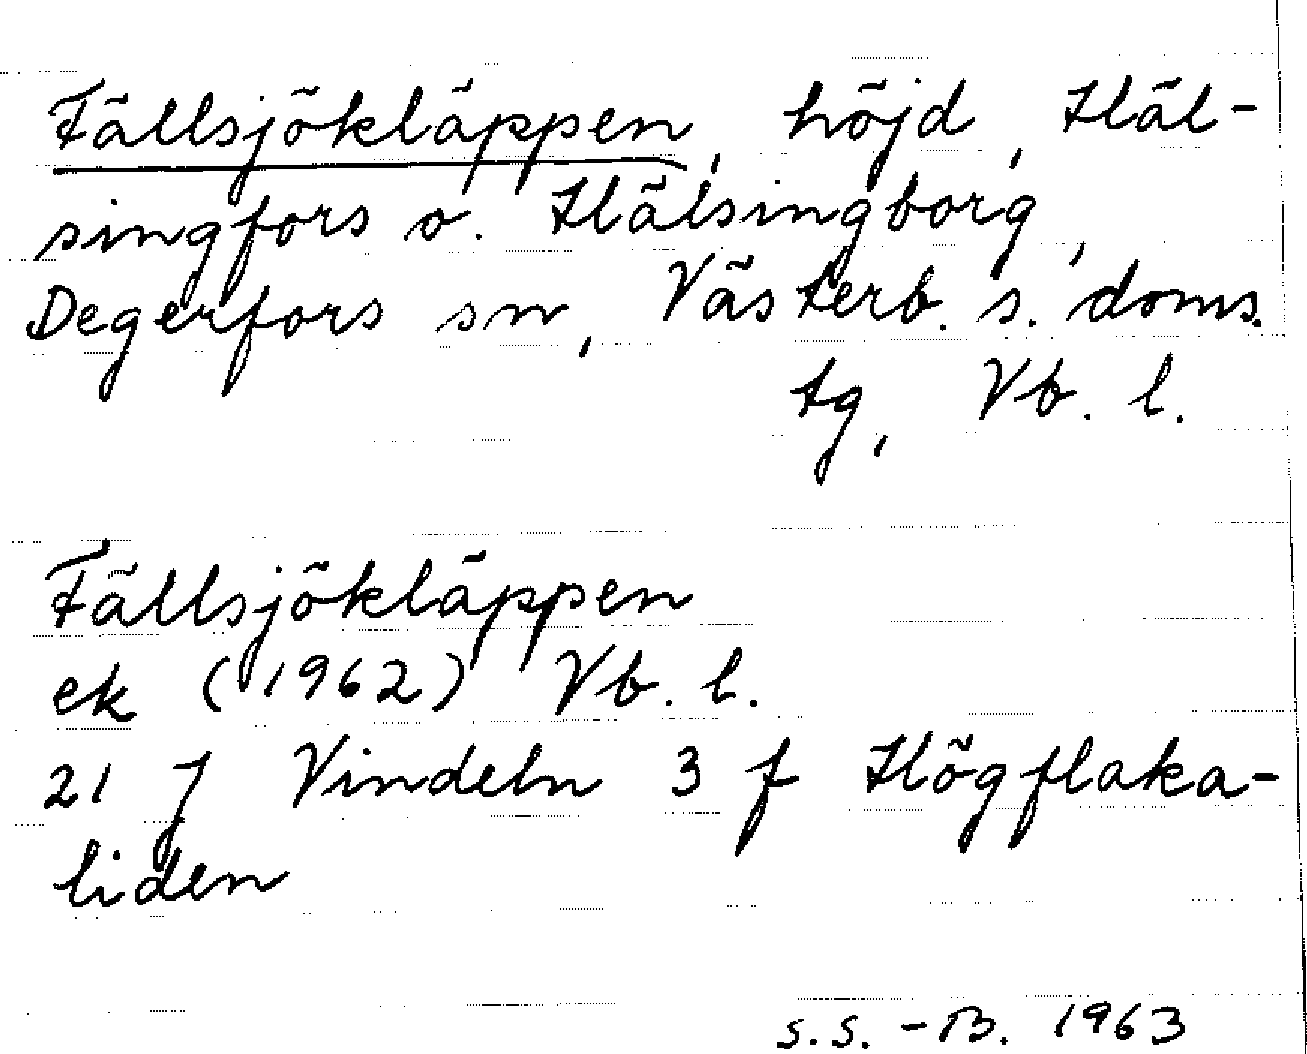 Fällsjökläppen, höjd, Häl-
singfors o. Hälsingborg,
Degerfors sn, Västerb. s. doms.
tg, Vb. l.
Fällsjökläppen
ek (1962) Vb. l.
21 J Vindeln 3 f Högflaka-
liden
S.S.-B. 1963